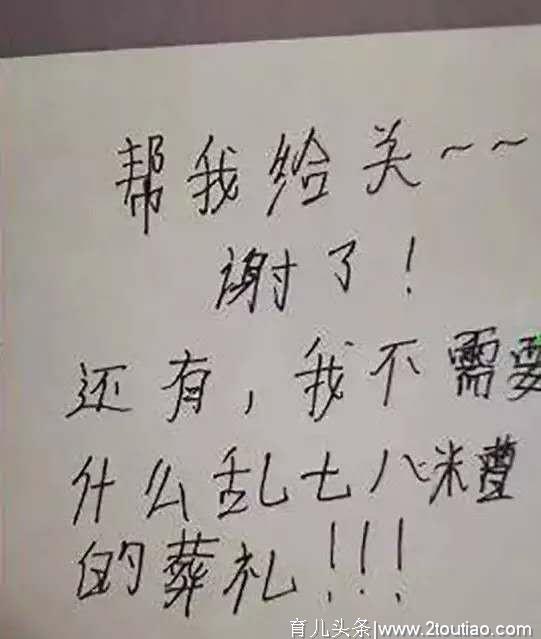 帮我给关~~
谢了!
还有,我不需要
什么乱七八米蕾
的葬礼!!!
育儿头条/www.2toutiao.com